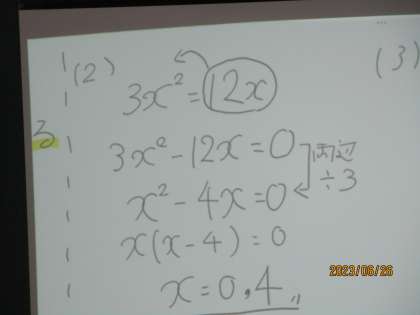 (2)
3x² = 12x
(3)
3
3x² - 12x = 0
両辺
÷3
x² - 4x = 0
x(x - 4) = 0
x = 0, 4
2023/06/26